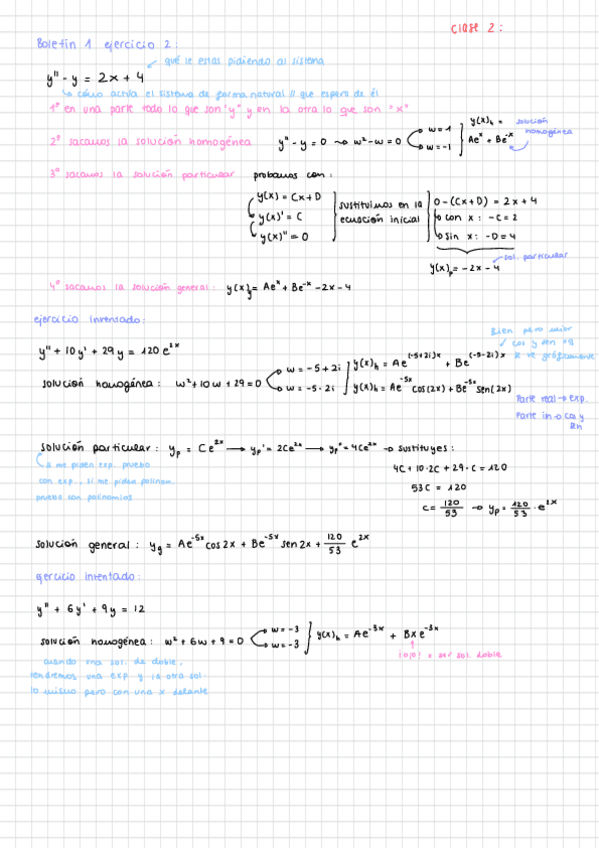 clase 2:
Boletín 1 ejercicio 2:
qué le estas pidiendo al sistema
y'' - y = 2x + 4
↳ cómo actúa el sistema de forma natural // que espero de él
1º en una parte todo lo que son "y" y en la otra lo que son "x"
2º sacamos la solución homogénea y'' - y = 0 ⇝ w² - w = 0 w = 1 w = -1 y(x)h = Ae^x + Be^-x solución homogénea
3º sacamos la solución particular probamos con:
y(x) = Cx + D
y(x)' = C
y(x)'' = 0
sustituimos en la ecuación inicial
0 - (Cx + D) = 2x + 4
con x: -C = 2
sin x: -D = 4
y(x)p = -2x - 4
sol. particular
4º sacamos la solución general: y(x)g = Ae^x + Be^-x - 2x - 4
ejercicio inventado:
y'' + 10y' + 29y = 120e^2x
solución homogénea: w² + 10w + 29 = 0 w = -5 + 2i w = -5 - 2i
y(x)h = Ae^(-5+2i)x + Be^(-5-2i)x
y(x)h = Ae^-5x cos(2x) + Be^-5x sen(2x)
Bien pero mejor
cos y sen xq
se ve gráficamente
Parte real → exp.
Parte im → cos y
sen
solución particular: yp = Ce^2x → yp' = 2Ce^2x → yp'' = 4Ce^2x → sustituyes:
si me piden exp. pruebo
con exp., si me piden polinom.
pruebo con polinomios
4C + 10·2C + 29·C = 120
53C = 120
C = 120/53 → yp = 120/53 · e^2x
solución general: yg = Ae^-5x cos 2x + Be^-5x sen 2x + 120/53 e^2x
ejercicio inventado:
y'' + 6y' + 9y = 12
solución homogénea: w² + 6w + 9 = 0 w = -3 w = -3 y(x)h = Ae^-3x + Bxe^-3x
¡ojo! al ser sol. doble
cuando una sol. da doble,
tendremos una exp y la otra sol.
lo mismo pero con una x delante